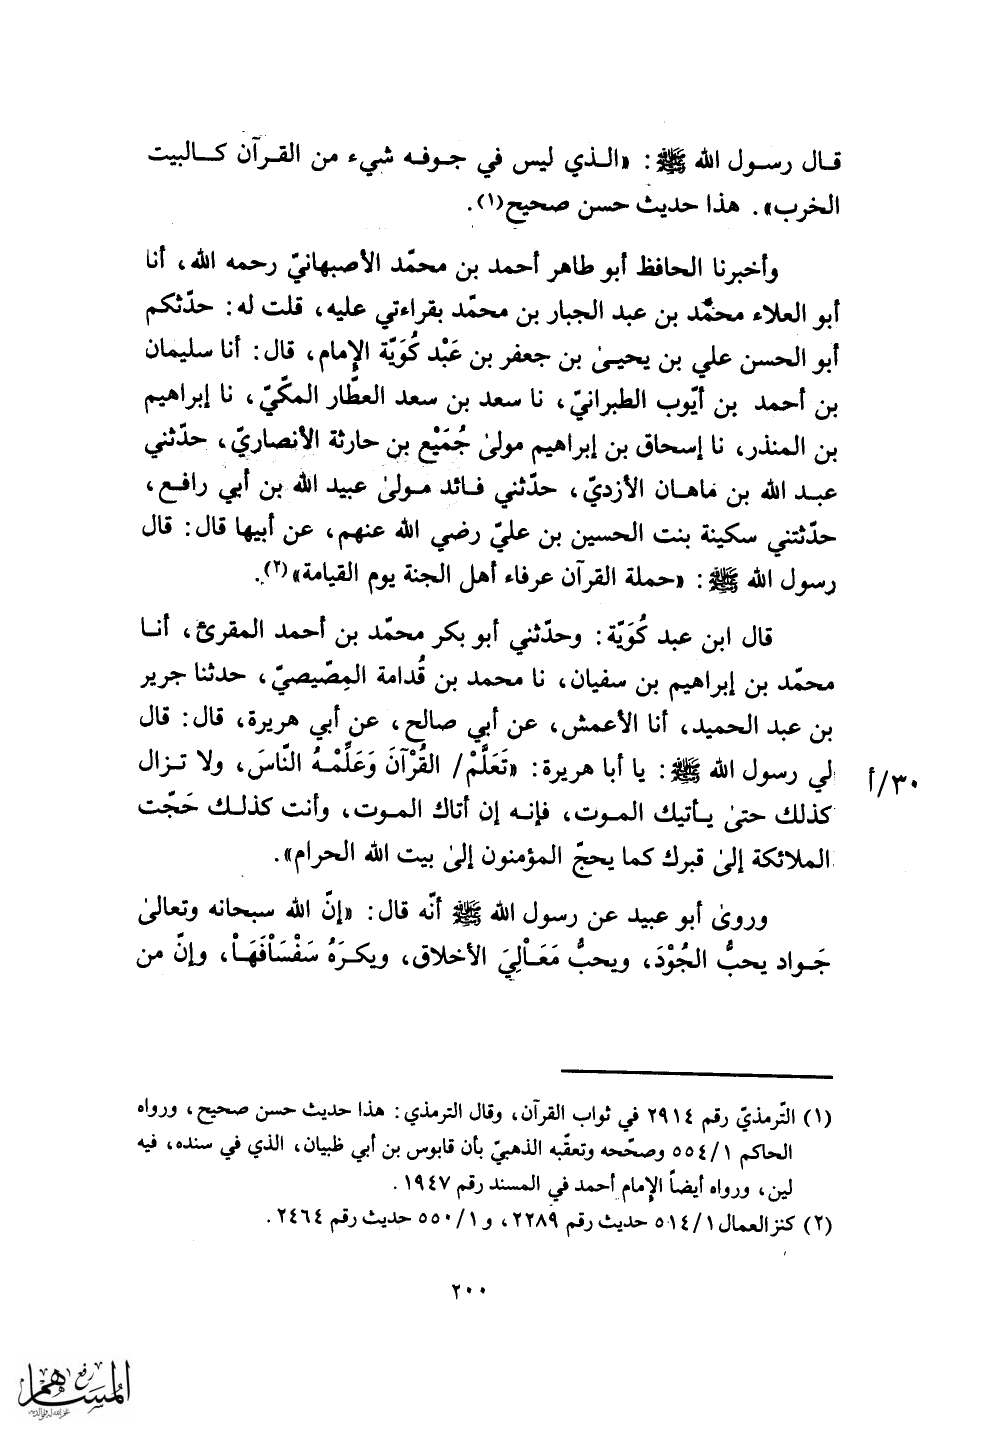 قال رسول الله ﷺ: «الذي ليس في جوفه شيء من القرآن كالبيت
الخرب». هذا حديث حسن صحيح(١).
وأخبرنا الحافظ أبو طاهر أحمد بن محمّد الأصبهانيّ رحمه الله، أنا
أبو العلاء محمّد بن عبد الجبار بن محمّد بقراءتي عليه، قلت له: حدّثكم
أبو الحسن علي بن يحيىٰ بن جعفر بن عَبْد كُوَيّة الإمام، قال: أنا سليمان
بن أحمد بن أيّوب الطبرانيّ، نا سعد بن سعد العطّار المكّيّ، نا إبراهيم
بن المنذر، نا إسحاق بن إبراهيم مولىٰ جُمَيْع بن حارثة الأنصاريّ، حدّثني
عبد الله بن ماهان الأزديّ، حدّثني فائد مولىٰ عبيد الله بن أبي رافع،
حدّثتني سكينة بنت الحسين بن عليّ رضي الله عنهم، عن أبيها قال: قال
رسول الله ﷺ: «حملة القرآن عرفاء أهل الجنة يوم القيامة»(٢).
قال ابن عبد كُوَيّة: وحدّثني أبو بكر محمّد بن أحمد المقرئ، أنا
محمّد بن إبراهيم بن سفيان، نا محمد بن قُدامة المِصّيصيّ، حدثنا جرير
بن عبد الحميد، أنا الأعمش، عن أبي صالح، عن أبي هريرة، قال: قال
لي رسول الله ﷺ: يا أبا هريرة: «تَعَلَّمْ/ القُرْآنَ وَعَلِّمْهُ النّاسَ، ولا تزال
٣٠/أ
كذلك حتىٰ يأتيك الموت، فإنه إن أتاك الموت، وأنت كذلك حَجّت
الملائكة إلىٰ قبرك كما يحجّ المؤمنون إلىٰ بيت الله الحرام».
وروىٰ أبو عبيد عن رسول الله ﷺ أنّه قال: «إنّ الله سبحانه وتعالىٰ
جَواد يحبُّ الجُوْدَ، ويحبُّ مَعَاْلِيَ الأخلاق، ويكرَهُ سَفْسَاْفَهَاْ، وإنّ من
(١) التّرمذيّ رقم ٢٩١٤ في ثواب القرآن، وقال الترمذي: هذا حديث حسن صحيح، ورواه
الحاكم ٥٥٤/١ وصحّحه وتعقّبه الذهبيّ بأن قابوس بن أبي ظبيان، الذي في سنده، فيه
لين، ورواه أيضاً الإمام أحمد في المسند رقم ١٩٤٧.
(٢) كنز العمال ٥١٤/١ حديث رقم ٢٢٨٩، و٥٥٠/١ حديث رقم ٢٤٦٤.
٢٠٠
رفع
المساهم